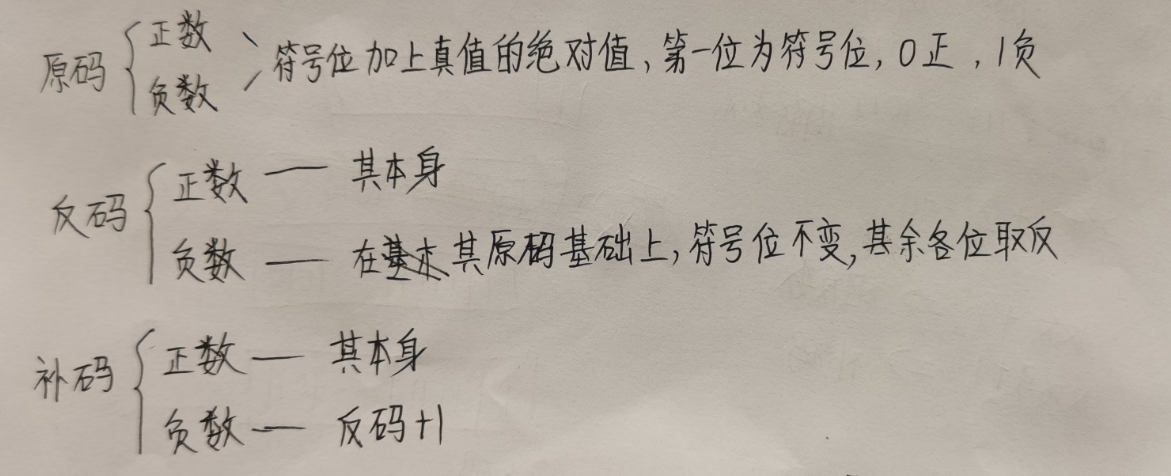 原码 { 正数
负数 } 符号位加上真值的绝对值,第一位为符号位,0正,1负
反码 { 正数 — 其本身
负数 — 在其原码基础上,符号位不变,其余各位取反
补码 { 正数 — 其本身
负数 — 反码+1